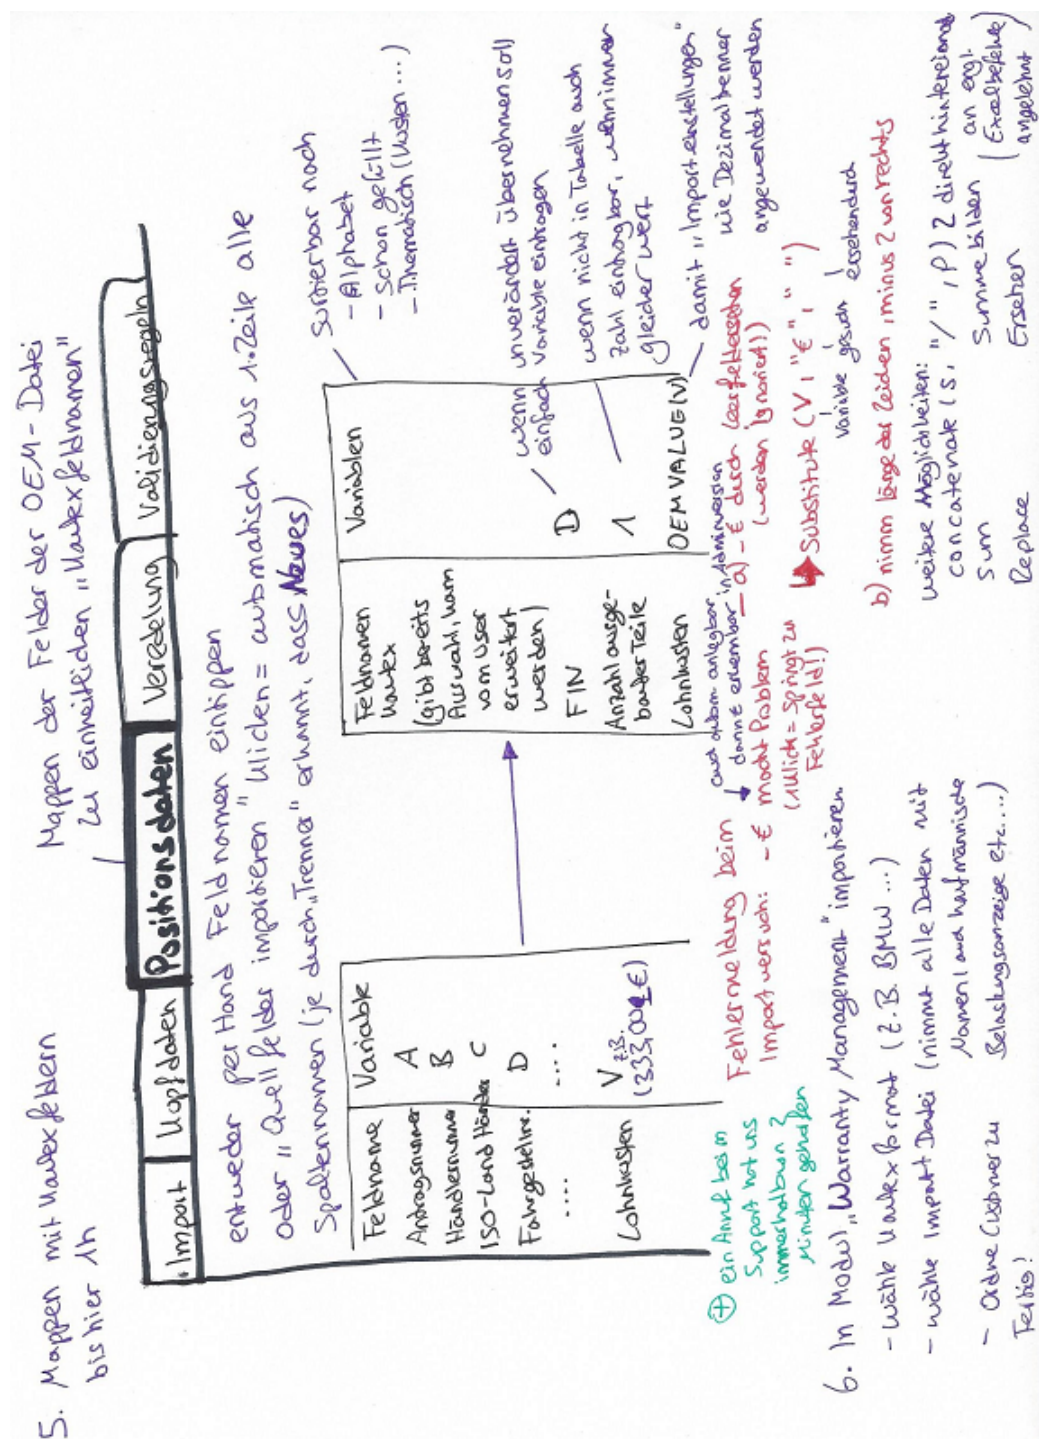 5. Mappen mit Kautexfeldern
bis hier 1h
Mappen der Felder der OEM-Datei
zu einheitlichen „Kautexfeldnamen"
Import
Kopfdaten
Positionsdaten
Veredelung
Validierungsregeln
entweder per Hand Feldnamen eintippen
oder „Quellfelder importieren" klicken = automatisch aus 1. Zeile alle
Spaltennamen (je durch „Trenner" erkannt, dass Neues)
Feldname
Variable
Antragsnummer
A
Händlernummer
B
ISO-Land Händler
C
Fahrgestellnr.
D
....
....
Lohnkosten
V
z.B.
(333,00 €)
Feldnamen
Kautex
(gibt bereits
Auswahl, kann
vom User
erweitert
werden)
Variablen
FIN
D
Anzahl ausge-
bauter Teile
1
Lohnkosten
OEMVALUE(V)
sortierbar nach
- Alphabet
- Schon gefüllt
- Thematisch (Kosten ...)
wenn unverändert übernehmen soll
einfach Variable eintragen
wenn nicht in Tabelle auch
Zahl eintragbar, wenn immer
gleicher Wert
damit „Importeinstellungen"
wie Dezimaltrenner
angewendet werden
+ ein Anruf beim
Support hat uns
innerhalb von 2
Minuten geholfen
Fehlermeldung beim
Importversuch:
- € macht Problem
(Klick = springt zu
Fehlerfeld!)
auch autom. anlegbar
dann € erkennbar in Adminversion
a) - € durch Leerfeld ersetzen
(werden ignoriert)
Substitute (V, "€", " ")
Variable
gesucht
ersetzen durch
b) nimm Länge der Zeichen, minus 2 von rechts
weitere Möglichkeiten:
concatenate (S, "/", P) 2 direkt hintereinander
Sum
Summe bilden
Replace
Ersetzen
(an engl.
Excelbefehle
angelehnt)
6. In Modul „Warranty Management" importieren
- wähle Kautexformat (z.B. BMW ...)
- wähle Import Datei (nimmt alle Daten mit
Namen, auch kaufmännische
Belastungsanzeige etc....)
- Ordne Customer zu
Fertig!